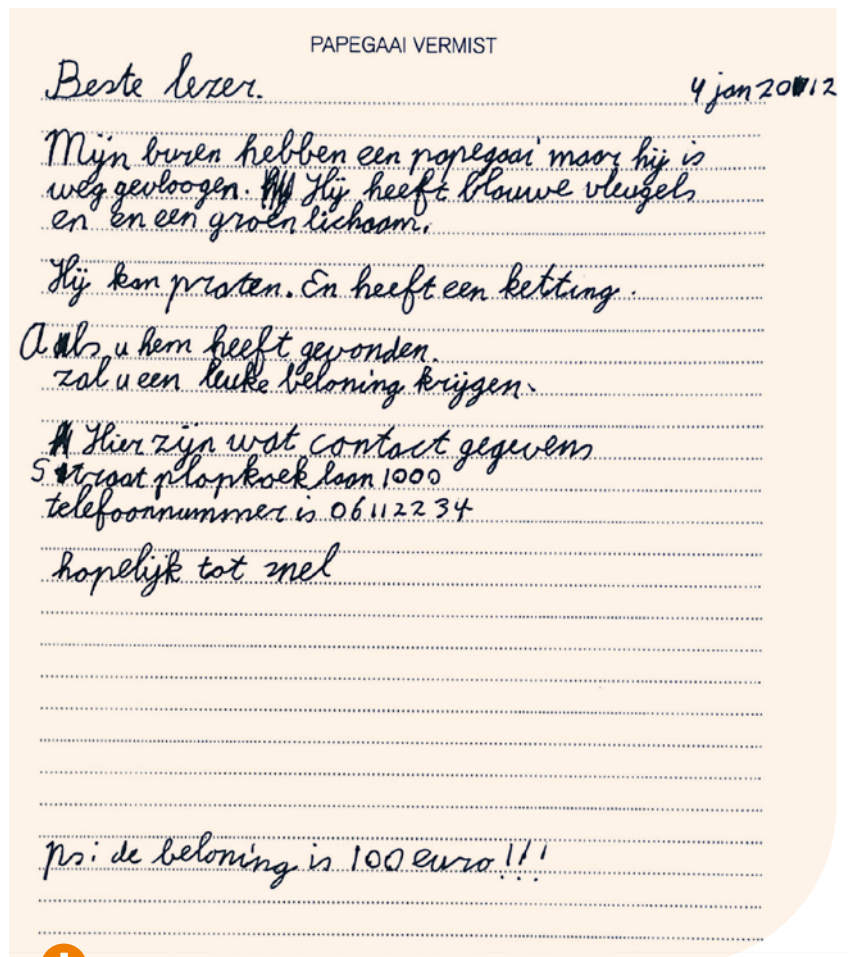 PAPEGAAI VERMIST
Beste lezer.
4 jan 2012
Mijn buren hebben een papegaai maar hij is
weg gevloogen. Hij heeft blauwe vleugels
en en een groen lichaam.
Hij kan praten. En heeft een ketting.
Als u hem heeft gevonden.
zal u een leuke beloning krijgen.
Hier zijn wat contact gegevens
Straat plopkoek laan 1000
telefoonnummer is 06112234
hopelijk tot snel
ps: de beloning is 100 euro!!!